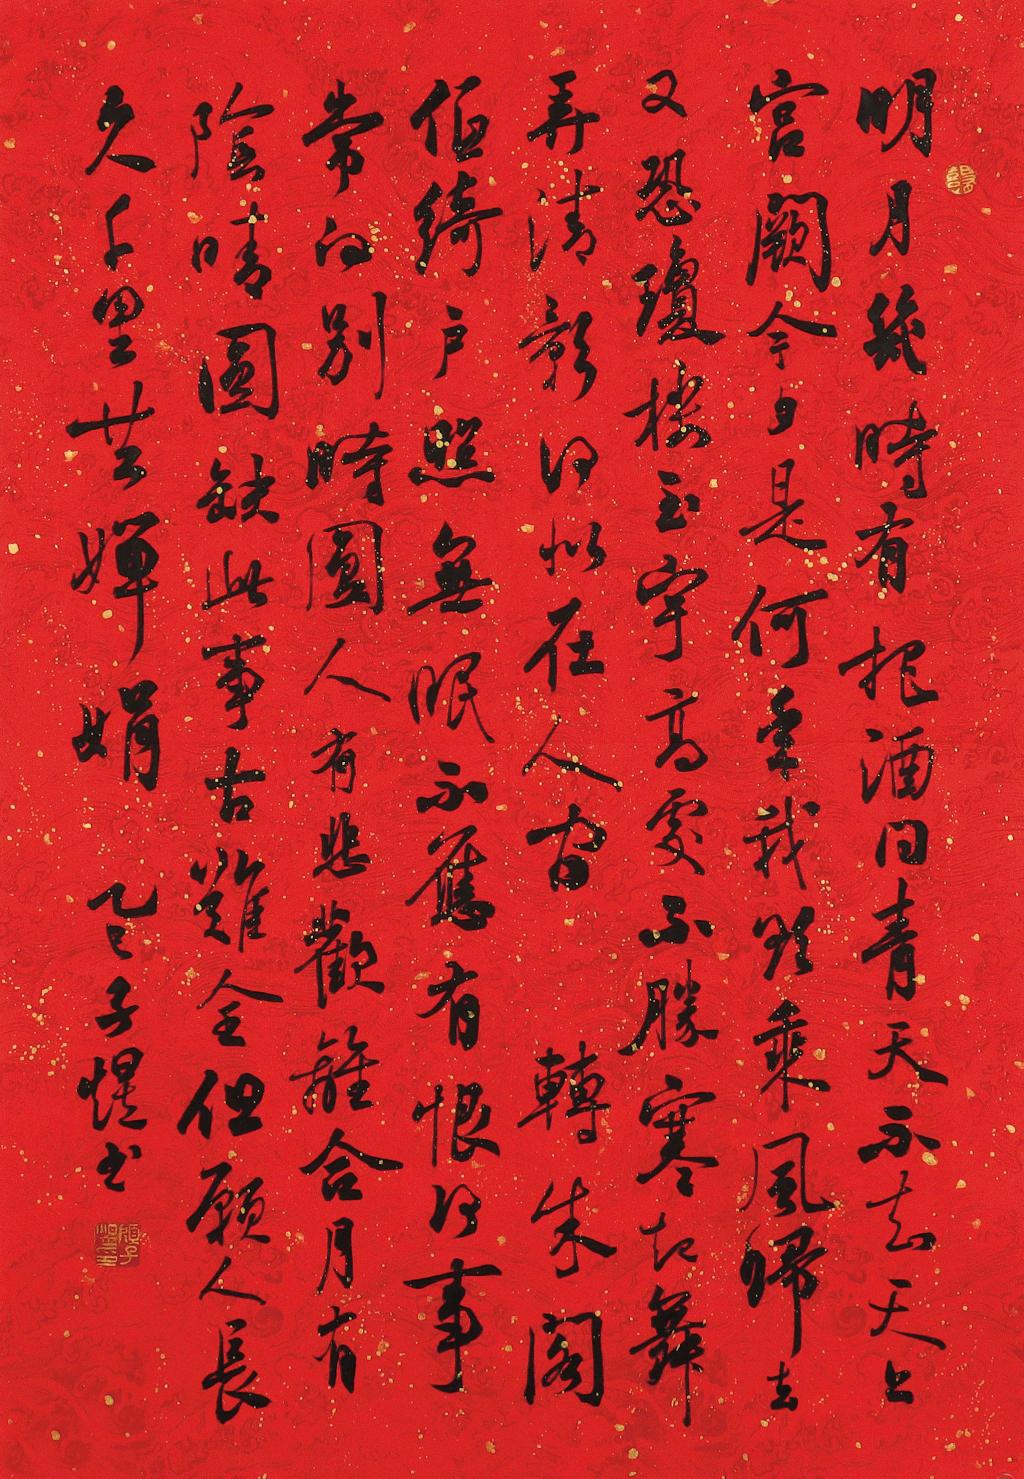 明月幾時有把酒問青天不知天上
宮闕今夕是何年我欲乘風歸去
又恐瓊樓玉宇高處不勝寒起舞
弄清影何似在人間 轉朱閣
低綺戶照無眠不應有恨何事
常向別時圓人有悲歡離合月有
陰晴圓缺此事古難全但願人長
久千里共嬋娟 乙巳子煜書